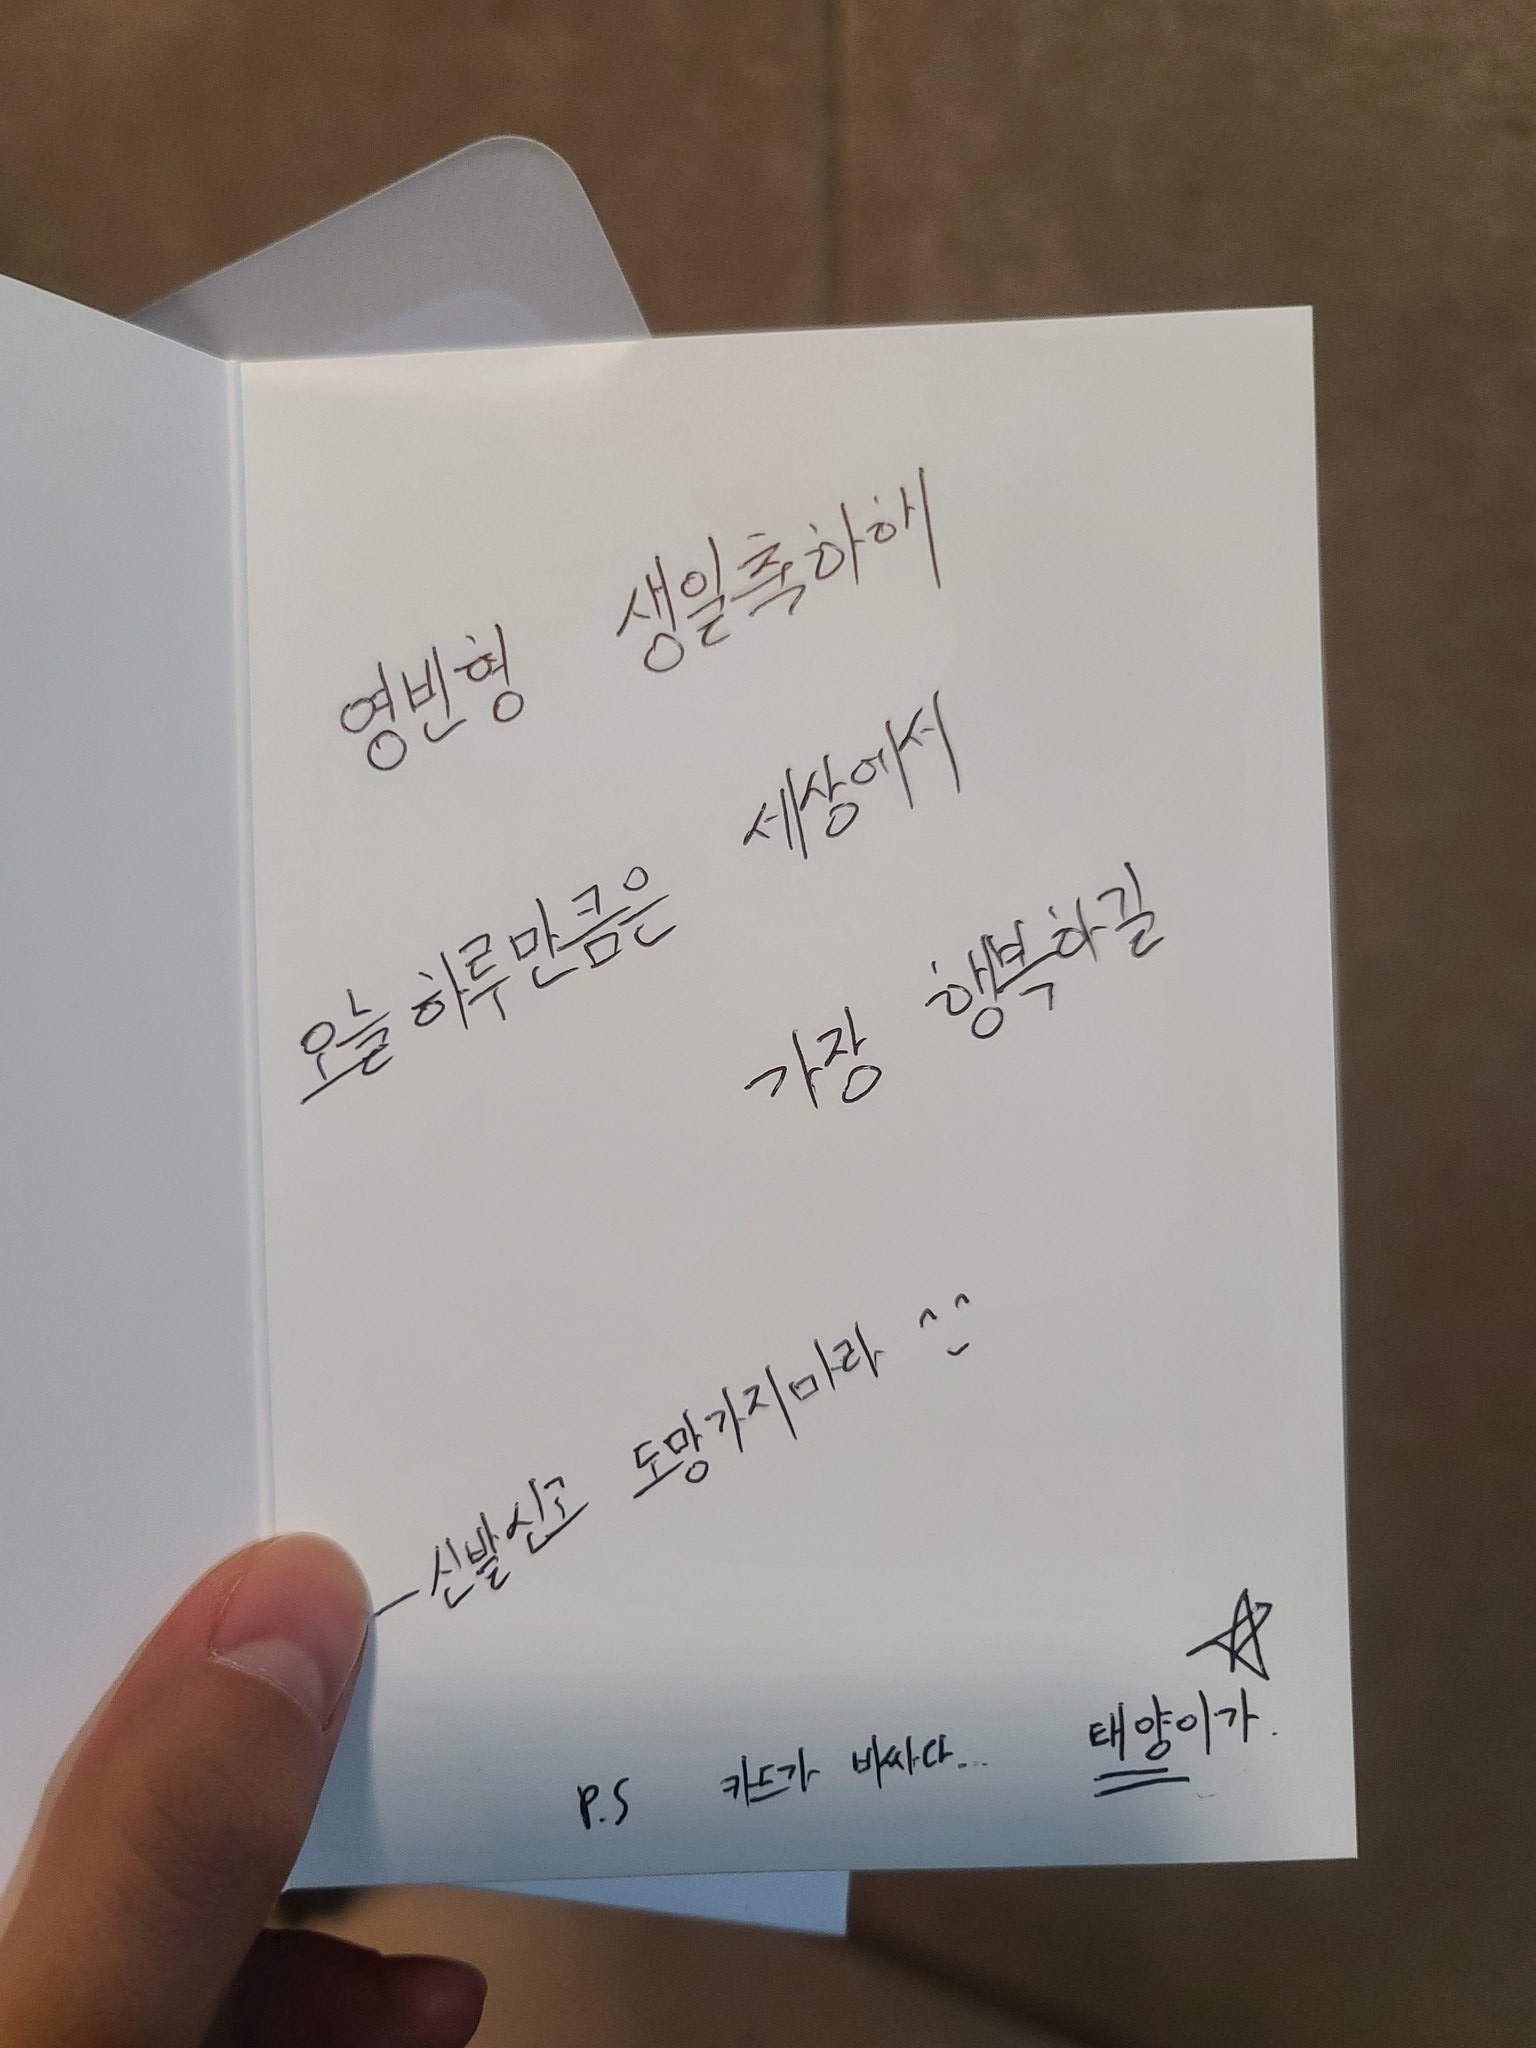 영빈형 생일축하해
오늘하루만큼은 세상에서
가장 행복하길
신발신고 도망가지마라 ^^
태양이가.
P.S 카드가 비싸다...